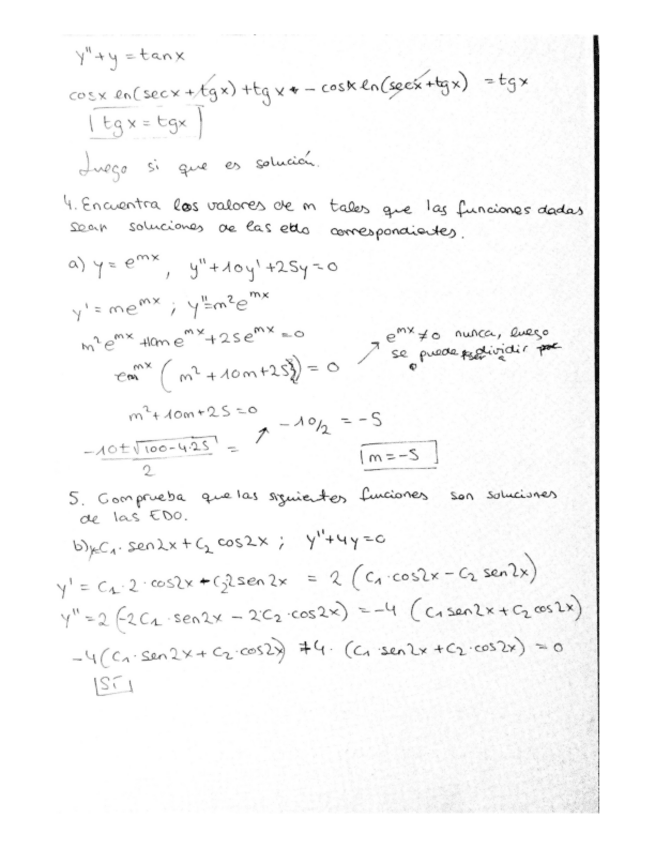 y'' + y = tan x
cosx ln(secx + tgx) + tgx - cosx ln(secx + tgx) = tgx
tgx = tgx
Luego si que es solución.
4. Encuentra los valores de m tales que las funciones dadas
sean soluciones de las edo correspondientes.
a) y = e^{mx}, y'' + 10y' + 25y = 0
y' = me^{mx} ; y'' = m²e^{mx}
m²e^{mx} + 10me^{mx} + 25e^{mx} = 0
e^{mx} ≠ 0 nunca, luego
se puede dividir
e^{mx} (m² + 10m + 25) = 0
m² + 10m + 25 = 0
(-10 ± √(100 - 4·25))/2 = -10/2 = -5
m = -5
5. Comprueba que las siguientes funciones son soluciones
de las EDO.
b) y = C₁· sen2x + C₂ cos2x ; y'' + 4y = 0
y' = C₁·2·cos2x - C₂2sen2x = 2 (C₁·cos2x - C₂ sen2x)
y'' = 2 (-2C₁·sen2x - 2C₂·cos2x) = -4 (C₁sen2x + C₂cos2x)
-4(C₁·sen2x + C₂·cos2x) + 4·(C₁·sen2x + C₂·cos2x) = 0
SÍ